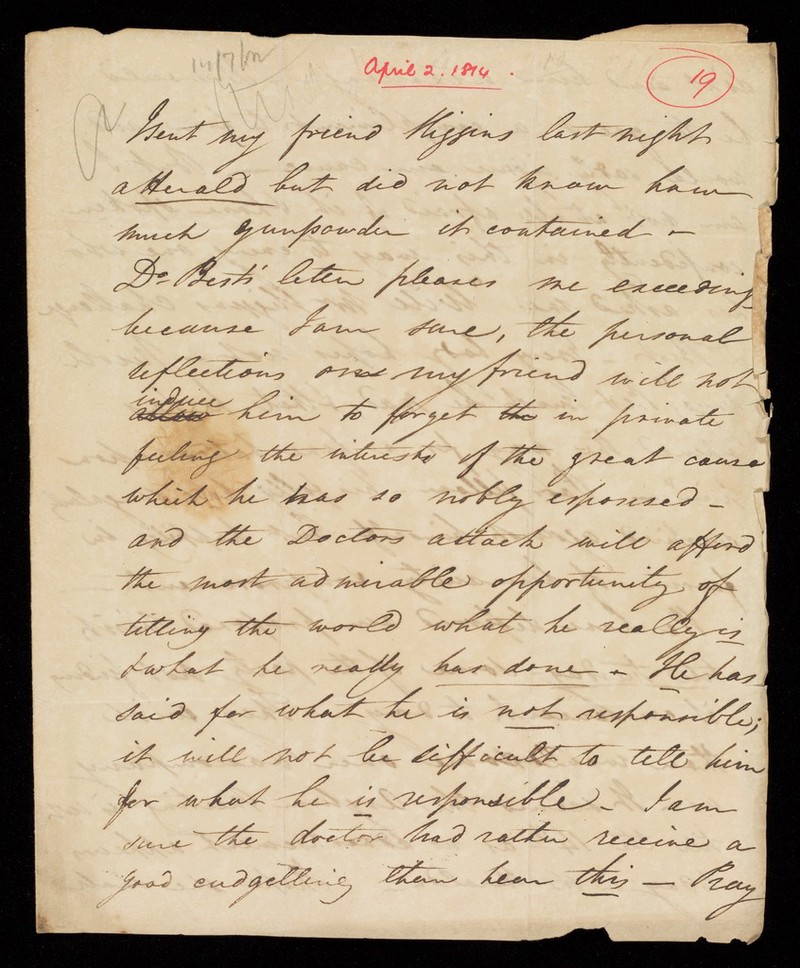 14/7/
April 2. 1814.
19
I sent my friend Higgins last night
a Herald but did not know how
much gunpowder it contained -
Dr Best's letter pleases me exceeding
because I am sure, the personal
reflections on my friend will not
induce him to forget the in private
feeling the interests of the great cause
which he has so nobly espoused -
and the Doctors attack will afford
the most admirable opportunity of
telling the world what he really is
& what he really has done - He has
said for what he is not responsible;
it will not be difficult to tell him
for what he is responsible - I am
sure the doctor had rather receive a
good cudgelling than hear this — Pray